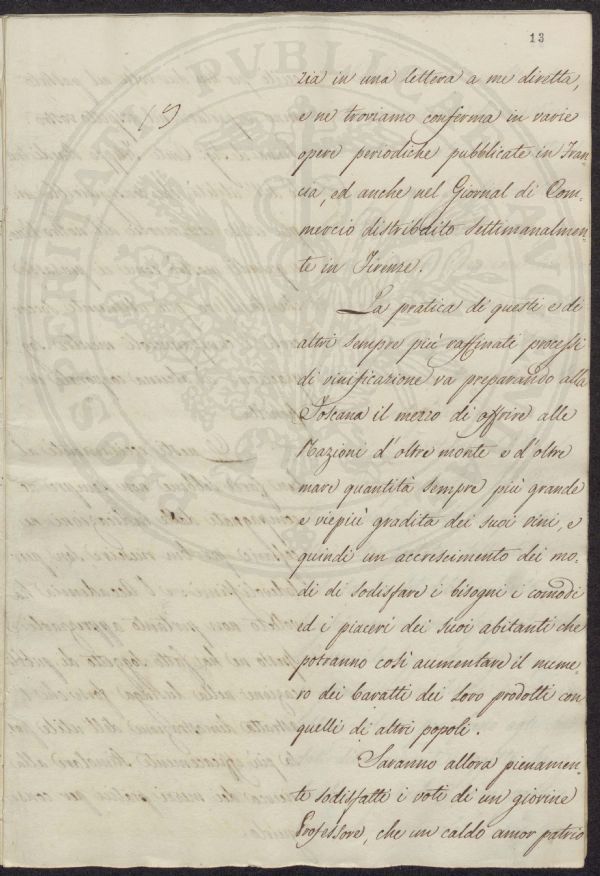 13
zia in una lettera a me diretta,
e ne troviamo conferma in varie
opere periodiche pubblicate in Fran-
cia, ed anche nel Giornal di Com-
mercio distribuito settimanalmen-
te in Firenze.
La pratica di questi e di
altri sempre più raffinati processi
di vinificazione va preparando alla
Toscana il mezzo di offrire alle
Nazioni d'oltre monte e d'oltre
mare quantità sempre più grande
e viepiù gradita dei suoi vini, e
quindi un accrescimento dei mo-
di di sodisfare i bisogni i comodi
ed i piaceri dei suoi abitanti che
potranno così aumentare il nume-
ro dei baratti dei loro prodotti con
quelli di altri popoli.
Saranno allora pienamen-
te sodisfatti i voti di un giovine
Professore, che un caldo amor patrio